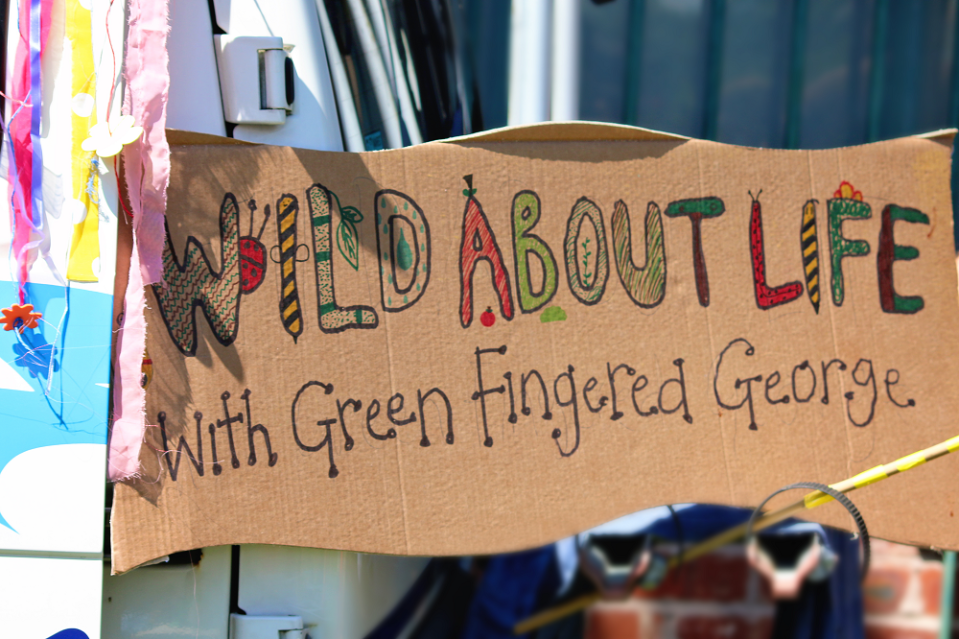 WILD ABOUT LIFE
With Green Fingered George